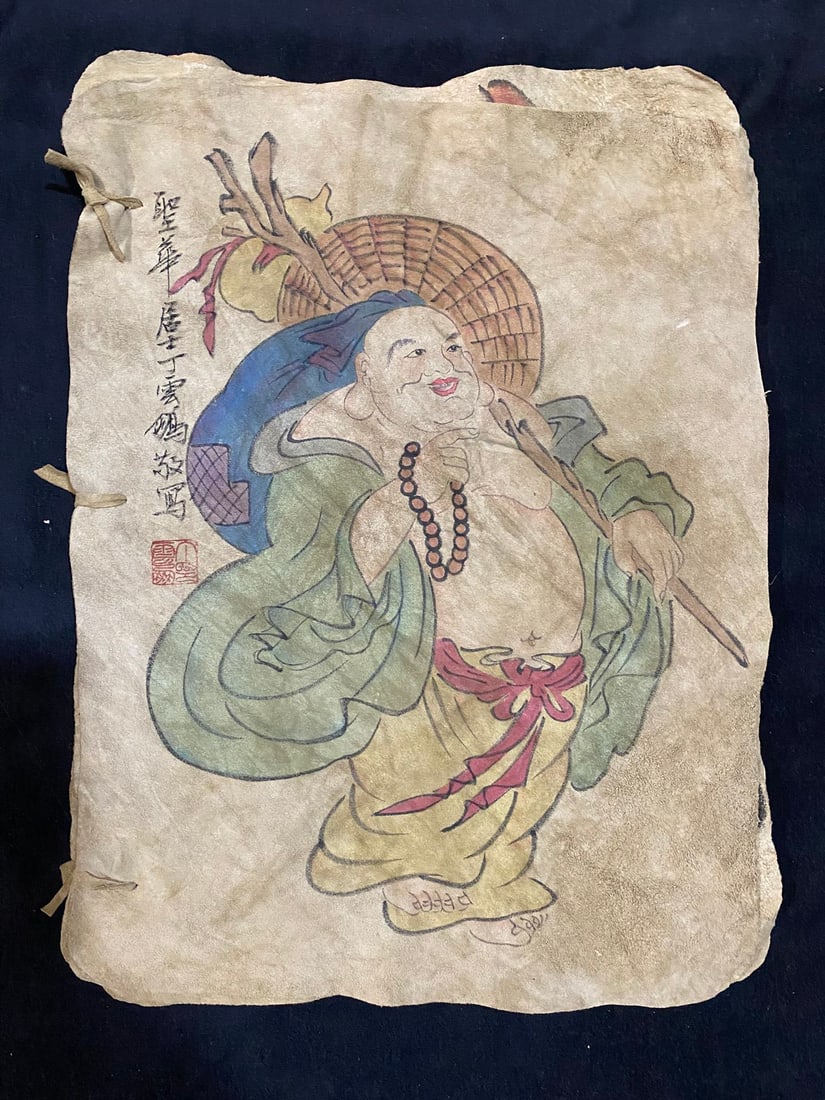 聖華居士丁雲鵬敬寫